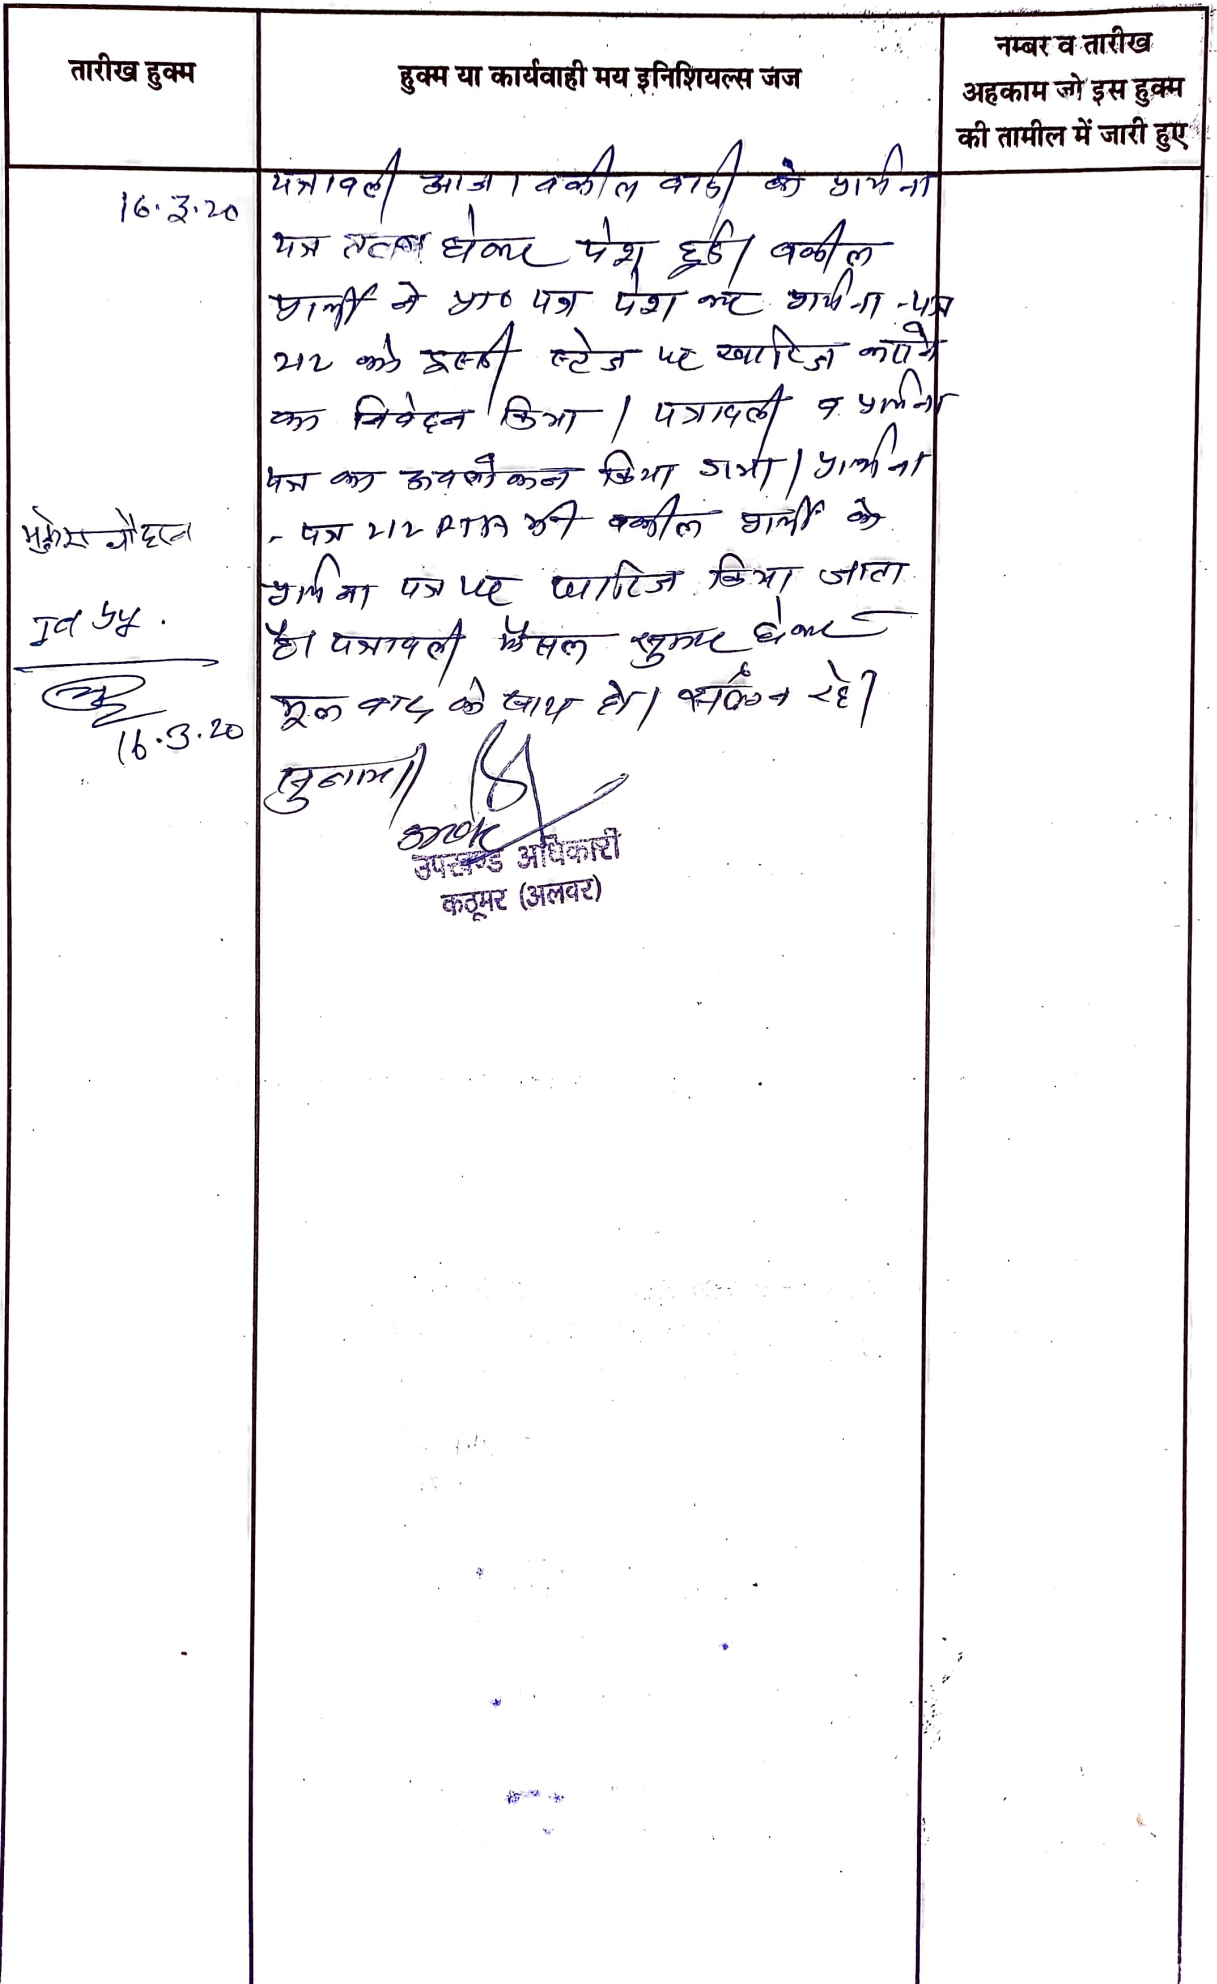 तारीख हुक्म
हुक्म या कार्यवाही मय इनिशियल्स जज
नम्बर व तारीख
अहकाम जो इस हुक्म
की तामील में जारी हुए
16.3.20
पत्रावली आज वकील वादी के प्रार्थना
पत्र तलब होकर पेश हुई। वकील
प्रार्थी ने प्रा० पत्र पेश कर प्रार्थना -पत्र
212 को इसी स्टेज पर खारिज करने
का निवेदन किया। पत्रावली व प्रार्थना
पत्र का अवलोकन किया गया। प्रार्थना
- पत्र 212 RTA की वकील प्रार्थी के
प्रार्थना पत्र पर खारिज किया जाता
है। पत्रावली फैसल शुमार होकर
मूल वाद के साथ हो। संलग्न रहे।
सुनाया।
16.3.20
उपखण्ड अधिकारी
कठूमर (अलवर)